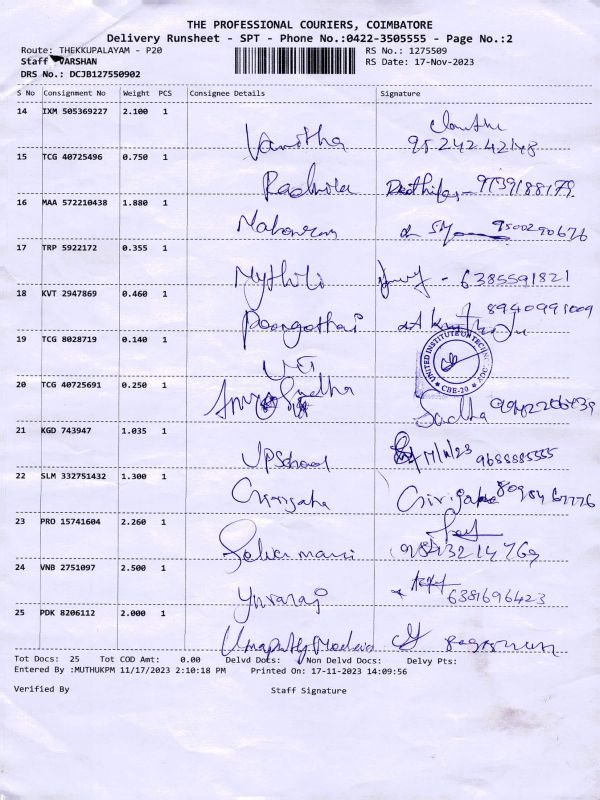 THE PROFESSIONAL COURIERS, COIMBATORE
Delivery Runsheet - SPT - Phone No.:0422-3505555 - Page No.:2
Route: THEKKUPALAYAM - P20
RS No.: 1275509
Staff VARSHAN
RS Date: 17-Nov-2023
DRS No.: DCJB127550902
S No Consignment No Weight PCS Consignee Details Signature
14 IXM 505369227 2.100 1
Vanitha
15 TCG 40725496 0.750 1
16 MAA 572210438 1.880 1
9500290676
17 TRP 5922172 0.355 1
Mythili - 6385591821
18 KVT 2947869 0.460 1
Poongothai
19 TCG 8028719 0.140 1
UNITED INSTITUTE OF TECHNOLOGY
CBE-20
20 TCG 40725691 0.250 1
Sudha
Sudha
21 KGD 743947 1.035 1
UPSchool 17/11/23 9688885555
22 SLM 332751432 1.300 1
Girigaha
23 PRO 15741604 2.260 1
Selvamani
24 VNB 2751097 2.500 1
Yuvaraj 6381696423
25 PDK 8206112 2.000 1
Tot Docs: 25 Tot COD Amt: 0.00 Delvd Docs: Non Delvd Docs: Delvy Pts:
Entered By :MUTHUKPM 11/17/2023 2:10:18 PM Printed On: 17-11-2023 14:09:56
Verified By Staff Signature